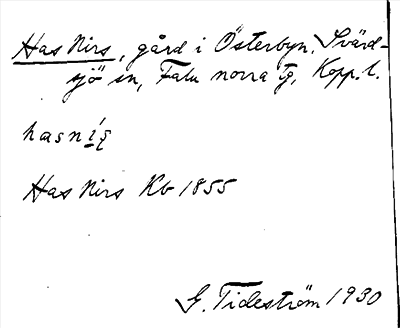 Has Nirs, gård i Österbyn, Svärd-
sjö sn, Falu norra tg, Kopp. l.
Has Nirs Kb 1855
G. Tideström 1930